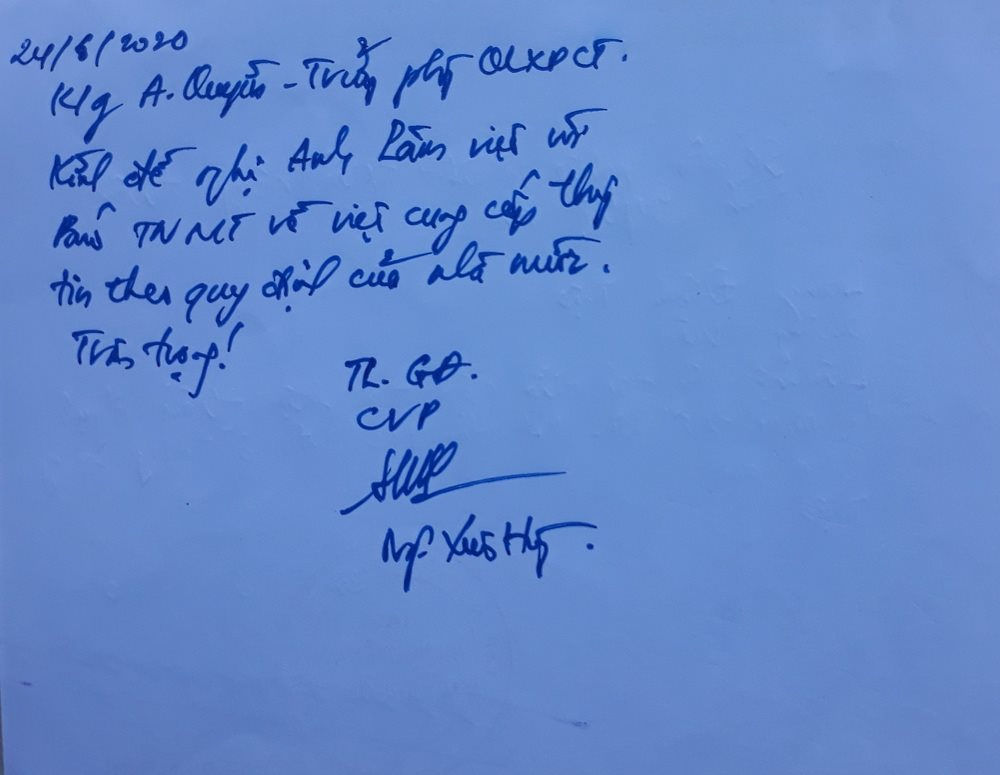 24/6/2020
Kg A. Quyền - Trưởng phg QLKPCT.
Kính đề nghị Anh Làm việc với
Báo TNMT về việc cung cấp thg
tin theo quy định của nhà nước.
Trân trọng!
TL. GĐ.
CVP
Ng. Xuân